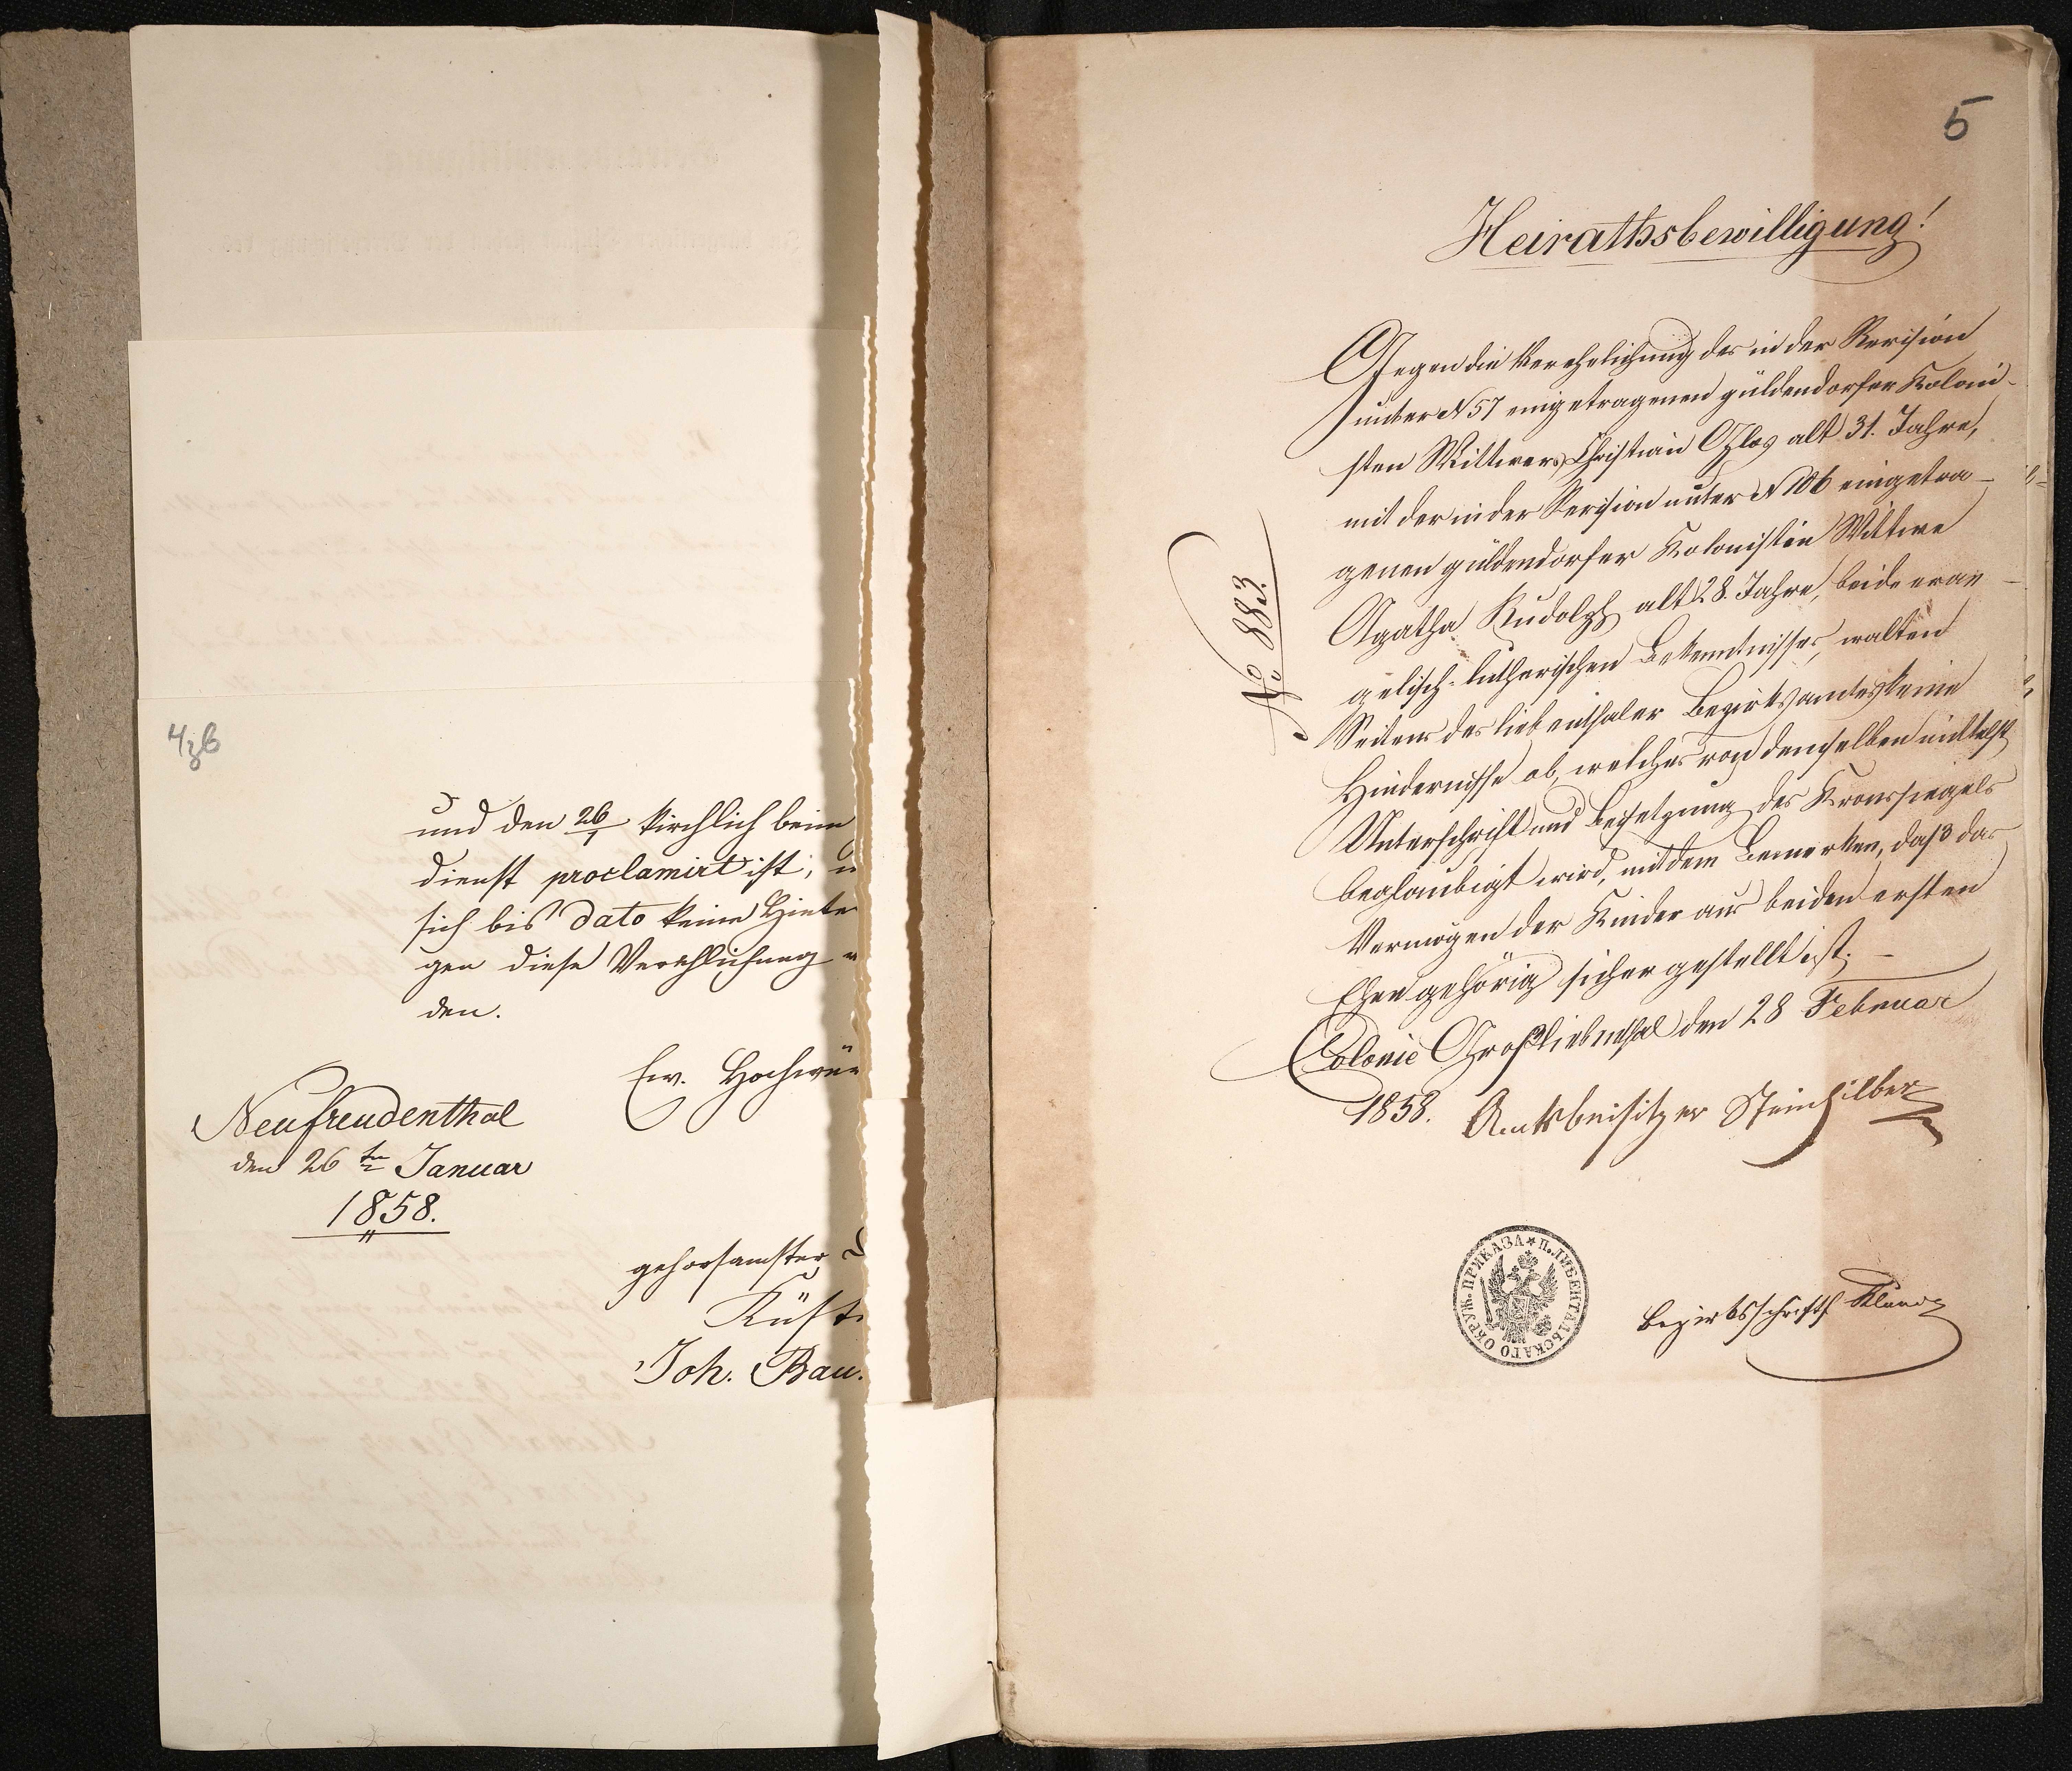 4zb
und den 26/1 kirchlich beim
dienst proclamirt ist, u
sich bis dato keine Hinte
gen diese Verehlichung
den.
Ew. Hochwür
Neufreudenthal
den 26ten Januar
1858.
gehorsamster
Küst
Joh. Bau
5
Heirathsbewilligung!
No. 883.
Gegen die Verehelichung des in der Revision
unter N 57 eingetragenen güldendorfer Koloni-
sten Wittwers Christian Ohlos alt 31. Jahre,
mit der in der Revision unter N 106 eingetra-
genen güldendorfer Kolonistin Wittwe
Agatha Rudolph alt 28. Jahre, beide evan-
gelisch-lutherischen Bekenntnisses, walten
Seitens des liebenthaler Bezirksamtes keine
Hindernisse ob, welches von demselben mittelst
Unterschrift und Beisetzung des Kronssiegels
beglaubigt wird, mit dem Bemerken, daß das
Vermögen der Kinder aus beiden ersten
Ehen gehörig sicher gestellt ist. -
Colonie Großliebenthal den 28 Februar
1858. Amtsbeisitzer Steinhilber
П. ЛИБЕНТАЛЬСКАГО ОКРУЖ. ПРИКАЗА *
Bezirksschrftf.